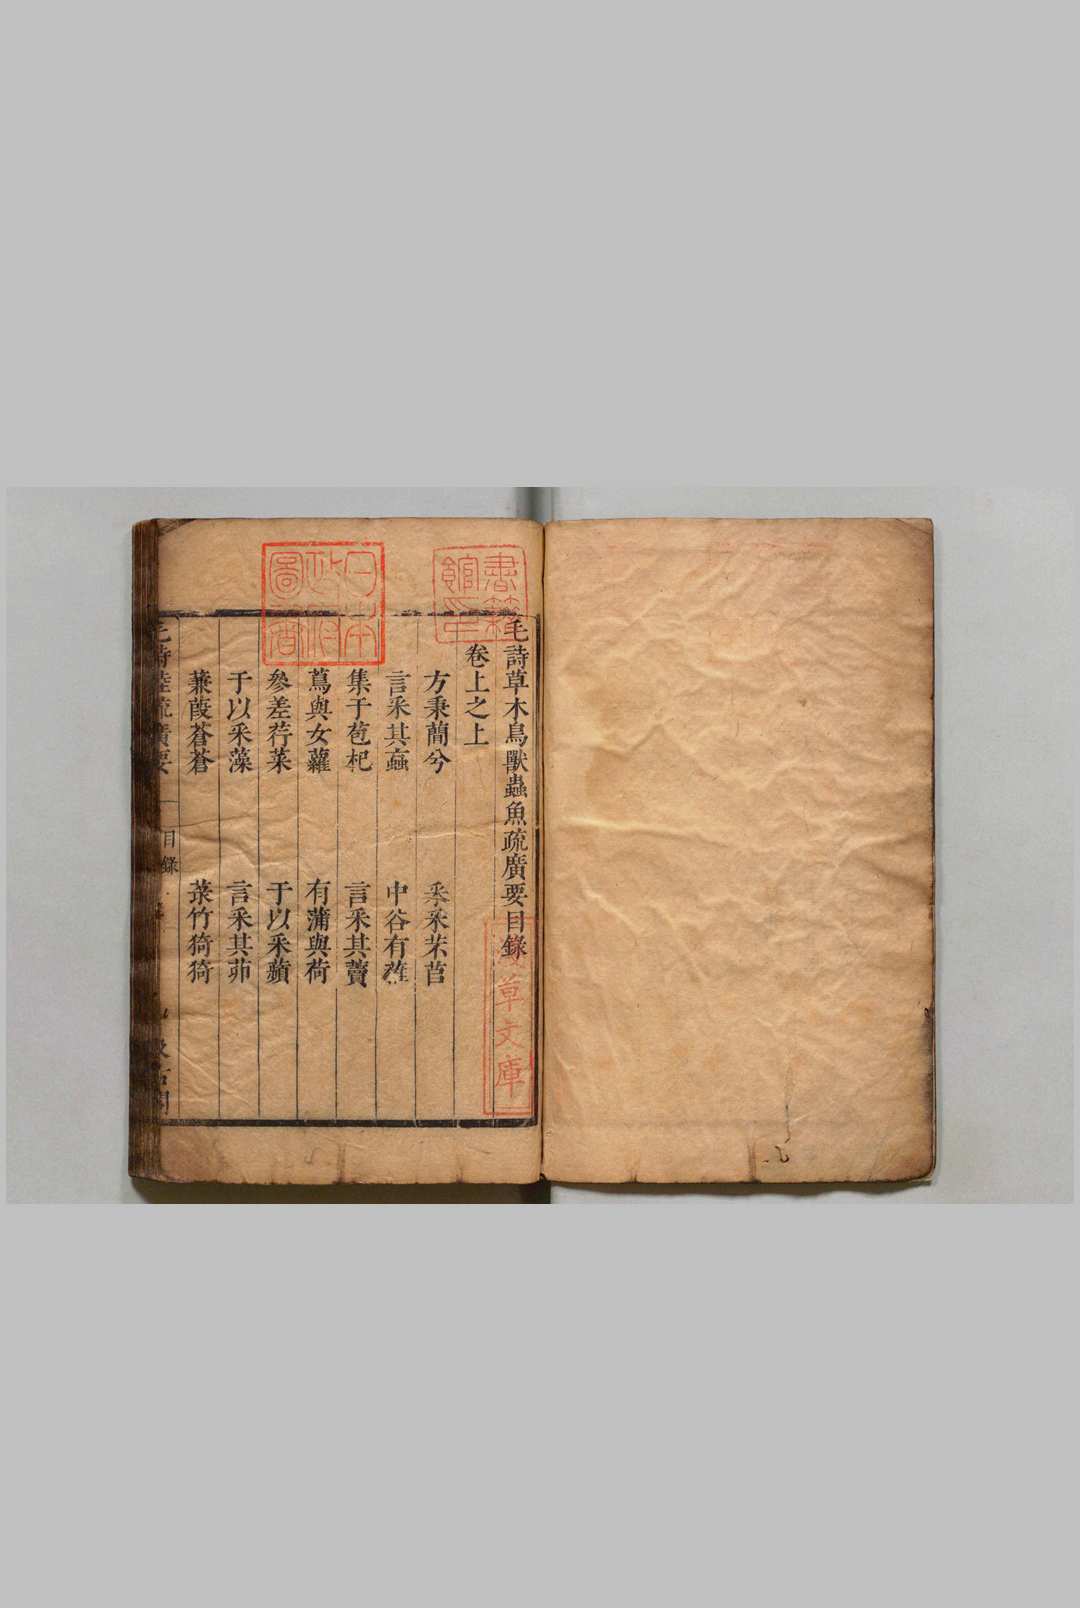 毛詩草木鳥獸蟲魚疏廣要目錄
卷上之上
方秉蕑兮 采采芣苢
言采其蝱 中谷有蓷
集于苞杞 言采其藚
蔦與女蘿 有蒲與荷
參差荇菜 于以采蘋
于以采藻 言采其茆
蒹葭蒼蒼 菉竹猗猗
毛詩陸疏廣要
目錄
汲古閣
書籍館印
日本政府圖書
草文庫